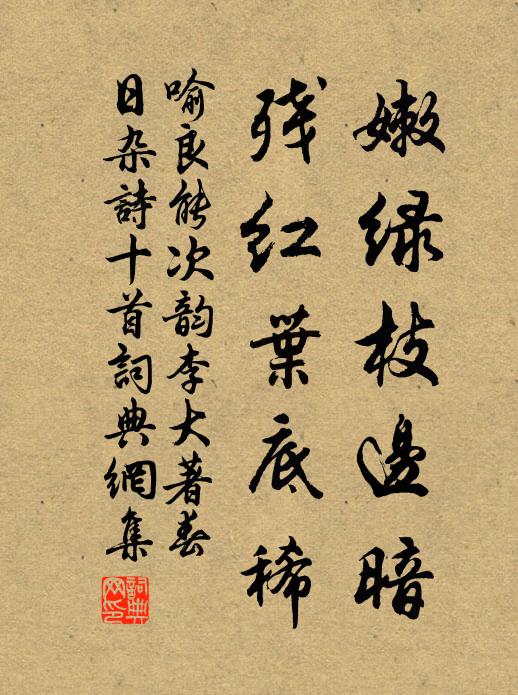 嫩绿枝邊暗
残红葉底稀
喻良能次韵李大著春
日杂詩十首詞典網集
詞典网印